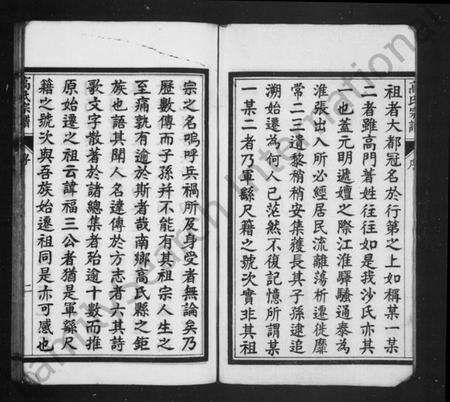 祖者大都冠名於行第之上如稱某一某
二者雖高門著姓往往如是我沙氏亦其
一也蓋元明遞嬗之際江淮驛騷通泰為
淮張出入所必經居民流離蕩析遷徙靡
常二三遺黎稍稍安集獲長其子孫逮追
溯始遷為何人已茫然不復記憶所謂某
一某二者乃軍繇尺籍之號次實非其祖
高氏宗譜
序
宗之名嗚呼兵禍所及身受者無論矣乃
歷數傳而子孫并不能有其祖宗人生之
至痛孰有逾於斯者哉南鄉高氏縣之鉅
族也語其聞人名達傳於方志者六其詩
歌文字散著於諸總集者殆逾十數而推
原始遷之祖云諱福三公者猶是軍繇尺
籍之號次與吾族始遷祖同是亦可感也
高氏宗譜
序
二